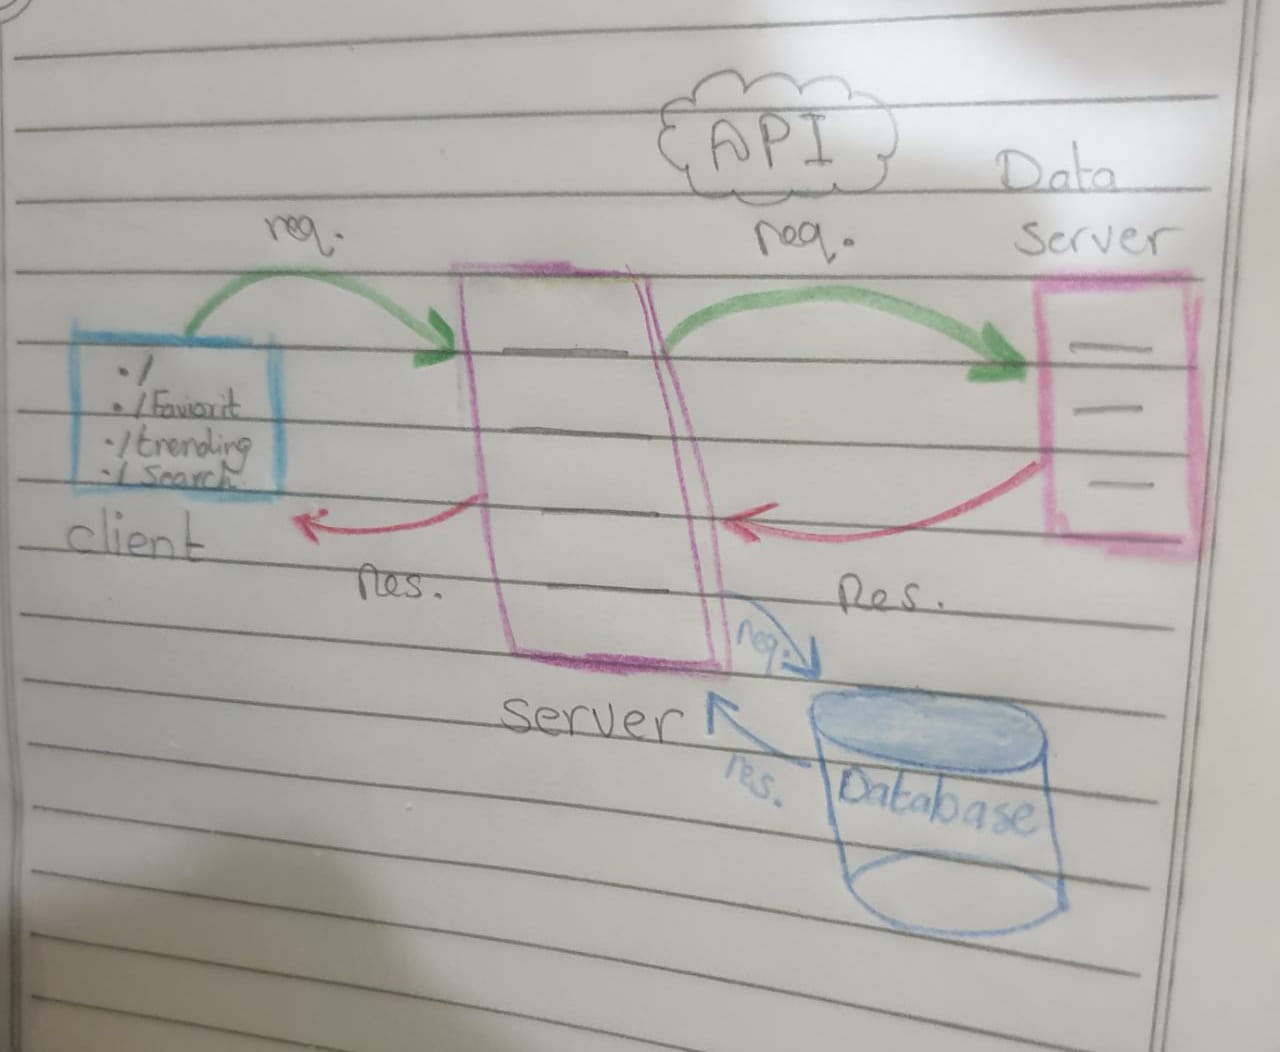 API
Data
server
req.
req.
./
./Faviorit
./trending
./Search
client
res.
Res.
req.
server
res.
Database